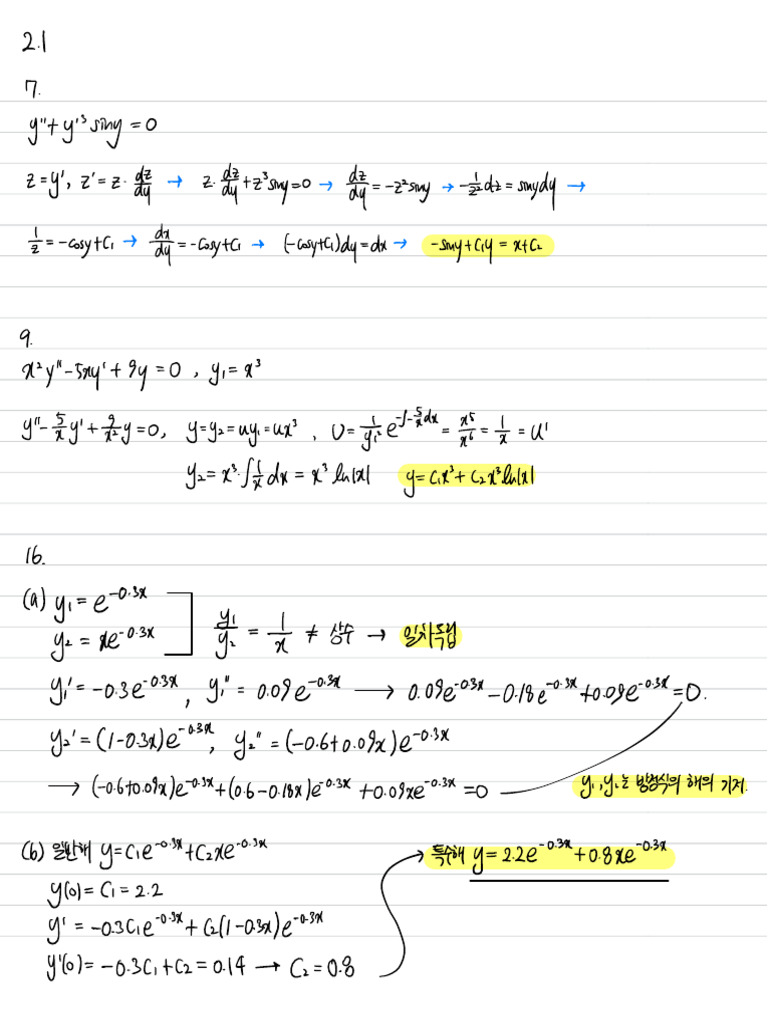 2.1
7.
y''+y'³ siny=0
z=y', z'=z·dz/dy → z·dz/dy+z³siny=0 → dz/dy=-z²siny → -1/z² dz=sinydy →
1/z=-cosy+C₁ → dx/dy=-cosy+C₁ → (-cosy+C₁)dy=dx → -siny+C₁y=x+C₂
9.
x²y''-5xy'+9y=0, y₁=x³
y''-5/x y'+9/x² y=0, y=y₂=uy₁=ux³, U=1/y₁² e^(-∫-5/x dx)=x⁵/x⁶=1/x=u'
y₂=x³·∫1/x dx=x³ln|x| y=C₁x³+C₂x³ln|x|
16.
(a) y₁=e^(-0.3x)
y₂=xe^(-0.3x) y₁/y₂=1/x≠상수 → 일차독립
y₁'=-0.3e^(-0.3x), y₁''=0.09e^(-0.3x) → 0.09e^(-0.3x)-0.18e^(-0.3x)+0.09e^(-0.3x)=0.
y₂'=(1-0.3x)e^(-0.3x), y₂''=(-0.6+0.09x)e^(-0.3x)
→ (-0.6+0.09x)e^(-0.3x)+(0.6-0.18x)e^(-0.3x)+0.09xe^(-0.3x)=0 y₁,y₂는 방정식의 해의 기저.
(b) 일반해 y=C₁e^(-0.3x)+C₂xe^(-0.3x) → 특수해 y=2.2e^(-0.3x)+0.8xe^(-0.3x)
y(0)=C₁=2.2
y'=-0.3C₁e^(-0.3x)+C₂(1-0.3x)e^(-0.3x)
y'(0)=-0.3C₁+C₂=0.14 → C₂=0.8